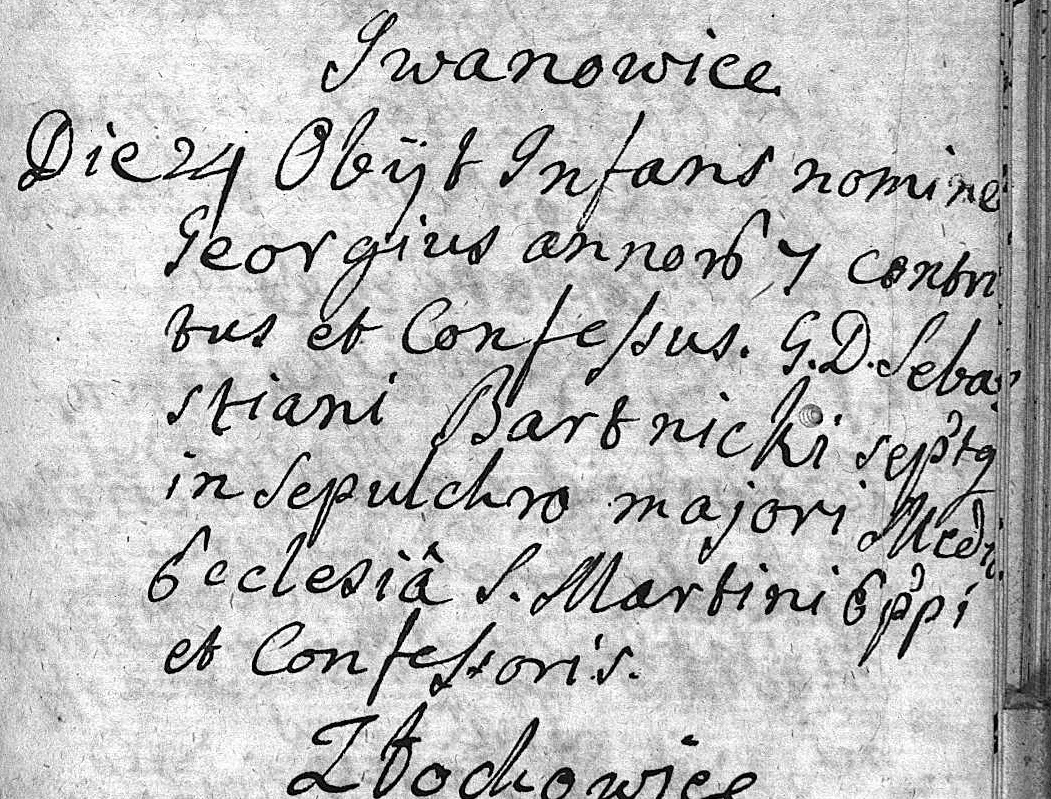 Iwanowice
Die 24 Obijt Infans nomine
Georgius annorũ 7 contri
tus et Confessus. G.D. Seba
stiani Bartnicki septq
in Sepulchro majori Medi
Ecclesiâ S. Martini Eppi
et Confessoris.
Zbochowice